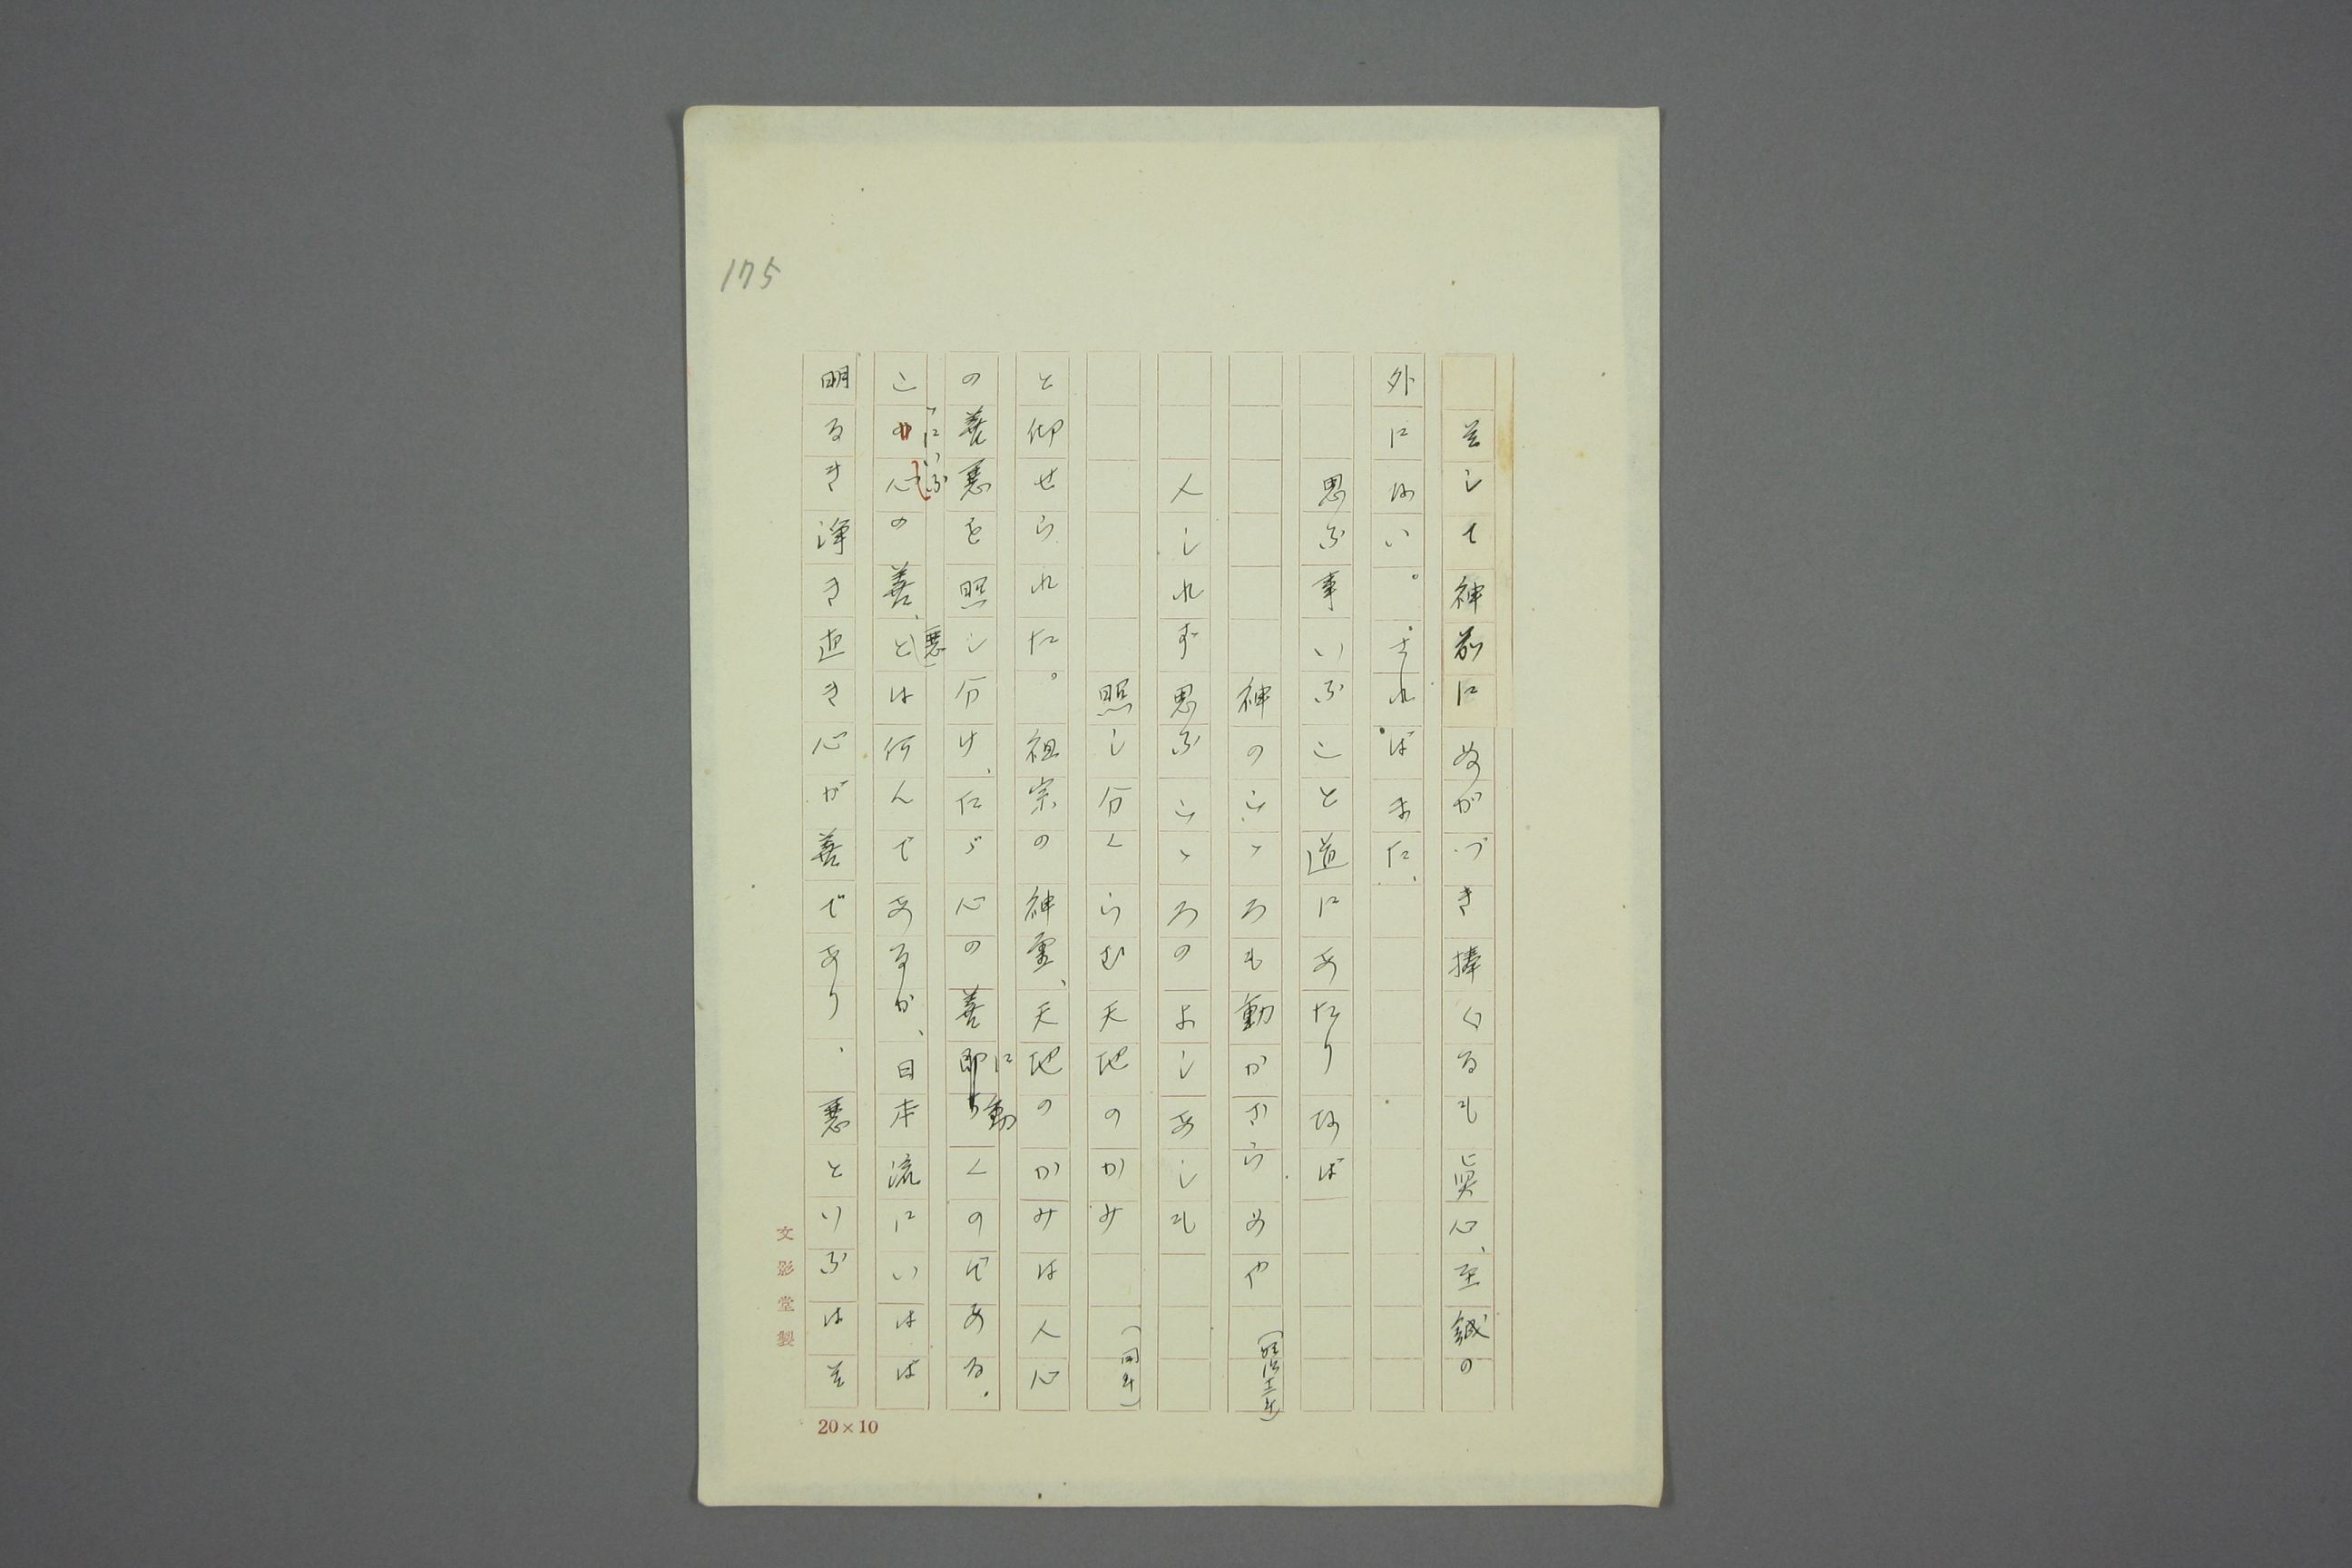 175
そして神前にぬかづき捧ぐるも眞心、至誠の
外にはない。さればまた、
思ふ事いふこと道にあたりなば
神のこゝろも動かざらめや (明治十二年)
人しれず思ふこゝろのよしあしも
照し分くらむ天地のかみ (同年)
と仰せられた。祖宗の神靈、天地のかみは人心
の善惡を照し分け、たゞ心の善に動くのである。
こゝにいふ心の善、惡とは何んであるか、日本流にいはば
明るき浄き直き心が善であり、惡といふはそ
文影堂製
20×10